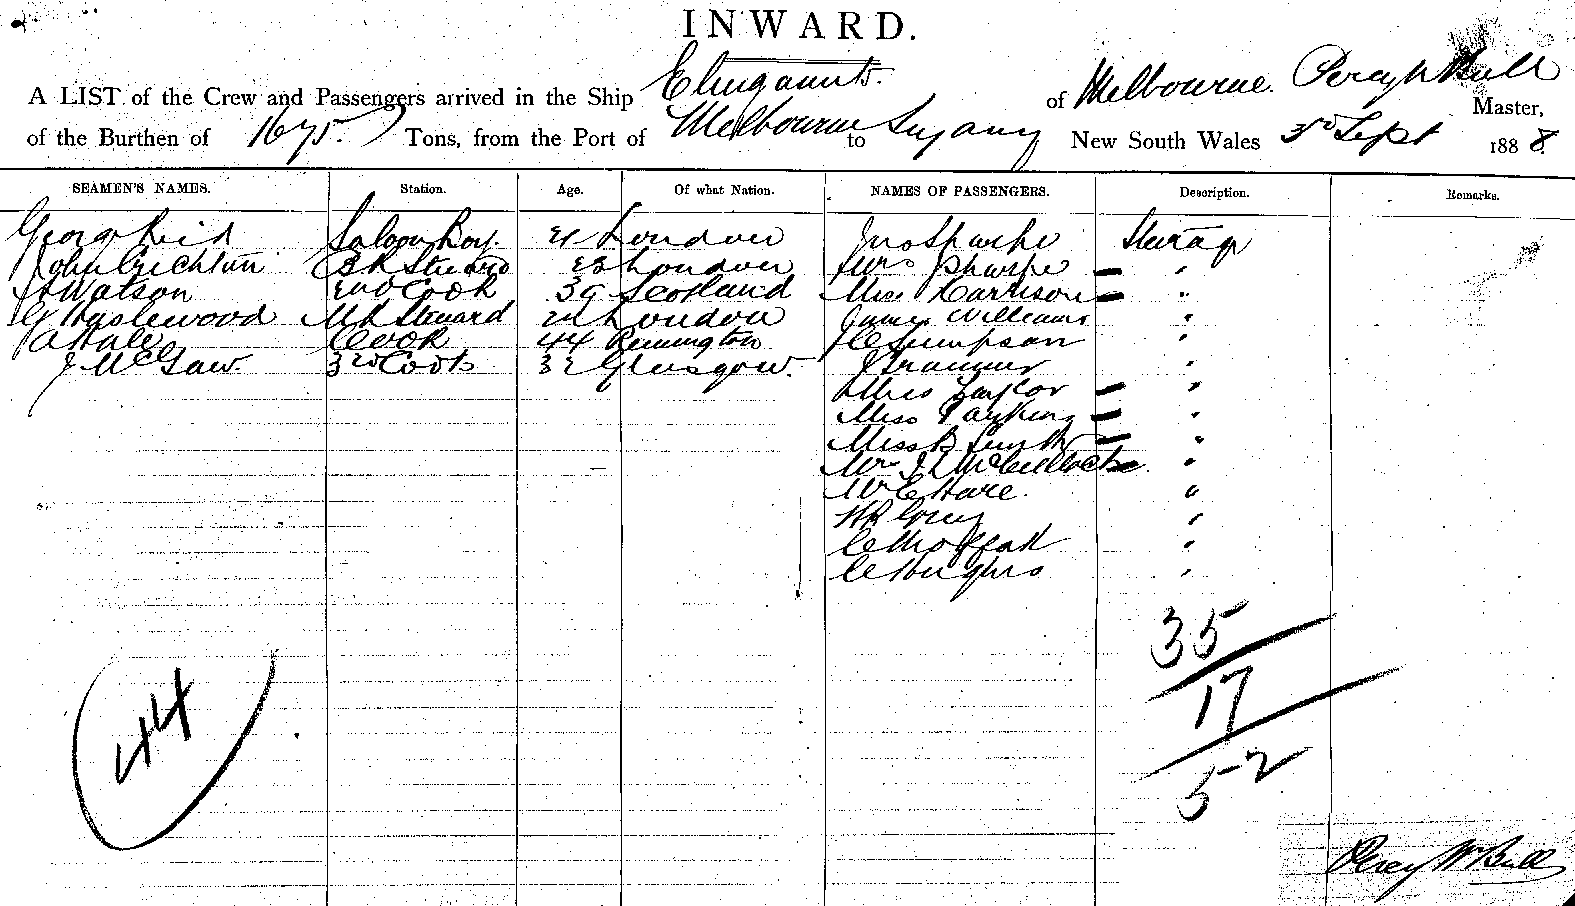 INWARD.
A LIST of the Crew and Passengers arrived in the Ship Elingamite. of Melbourne. Percy W Bull Master,
of the Burthen of 1675. Tons, from the Port of Melbourne to Sydney New South Wales 3rd Sept 1888.
SEAMEN'S NAMES. Station. Age. Of what Nation. NAMES OF PASSENGERS. Description. Remarks.
George Reid Saloon Boy. 21 London Jno Sharpe Steerage
John Crichton BR Steward 23 London Mrs Sharpe — "
Watson 2nd Cook 39 Scotland Miss Harrison — "
Haslewood MR Steward London James Williams "
A Hale Cook 44 Remington Simpson "
J McGaw. 3rd Cook 32 Glasgow. "
Miss Taylor — "
Miss — "
Miss B Smith — "
Mrs J L McCullock — "
Mr C Hare. "
"
C Moffatt "
C Hughes "
35
17
52
44
Percy W Bull